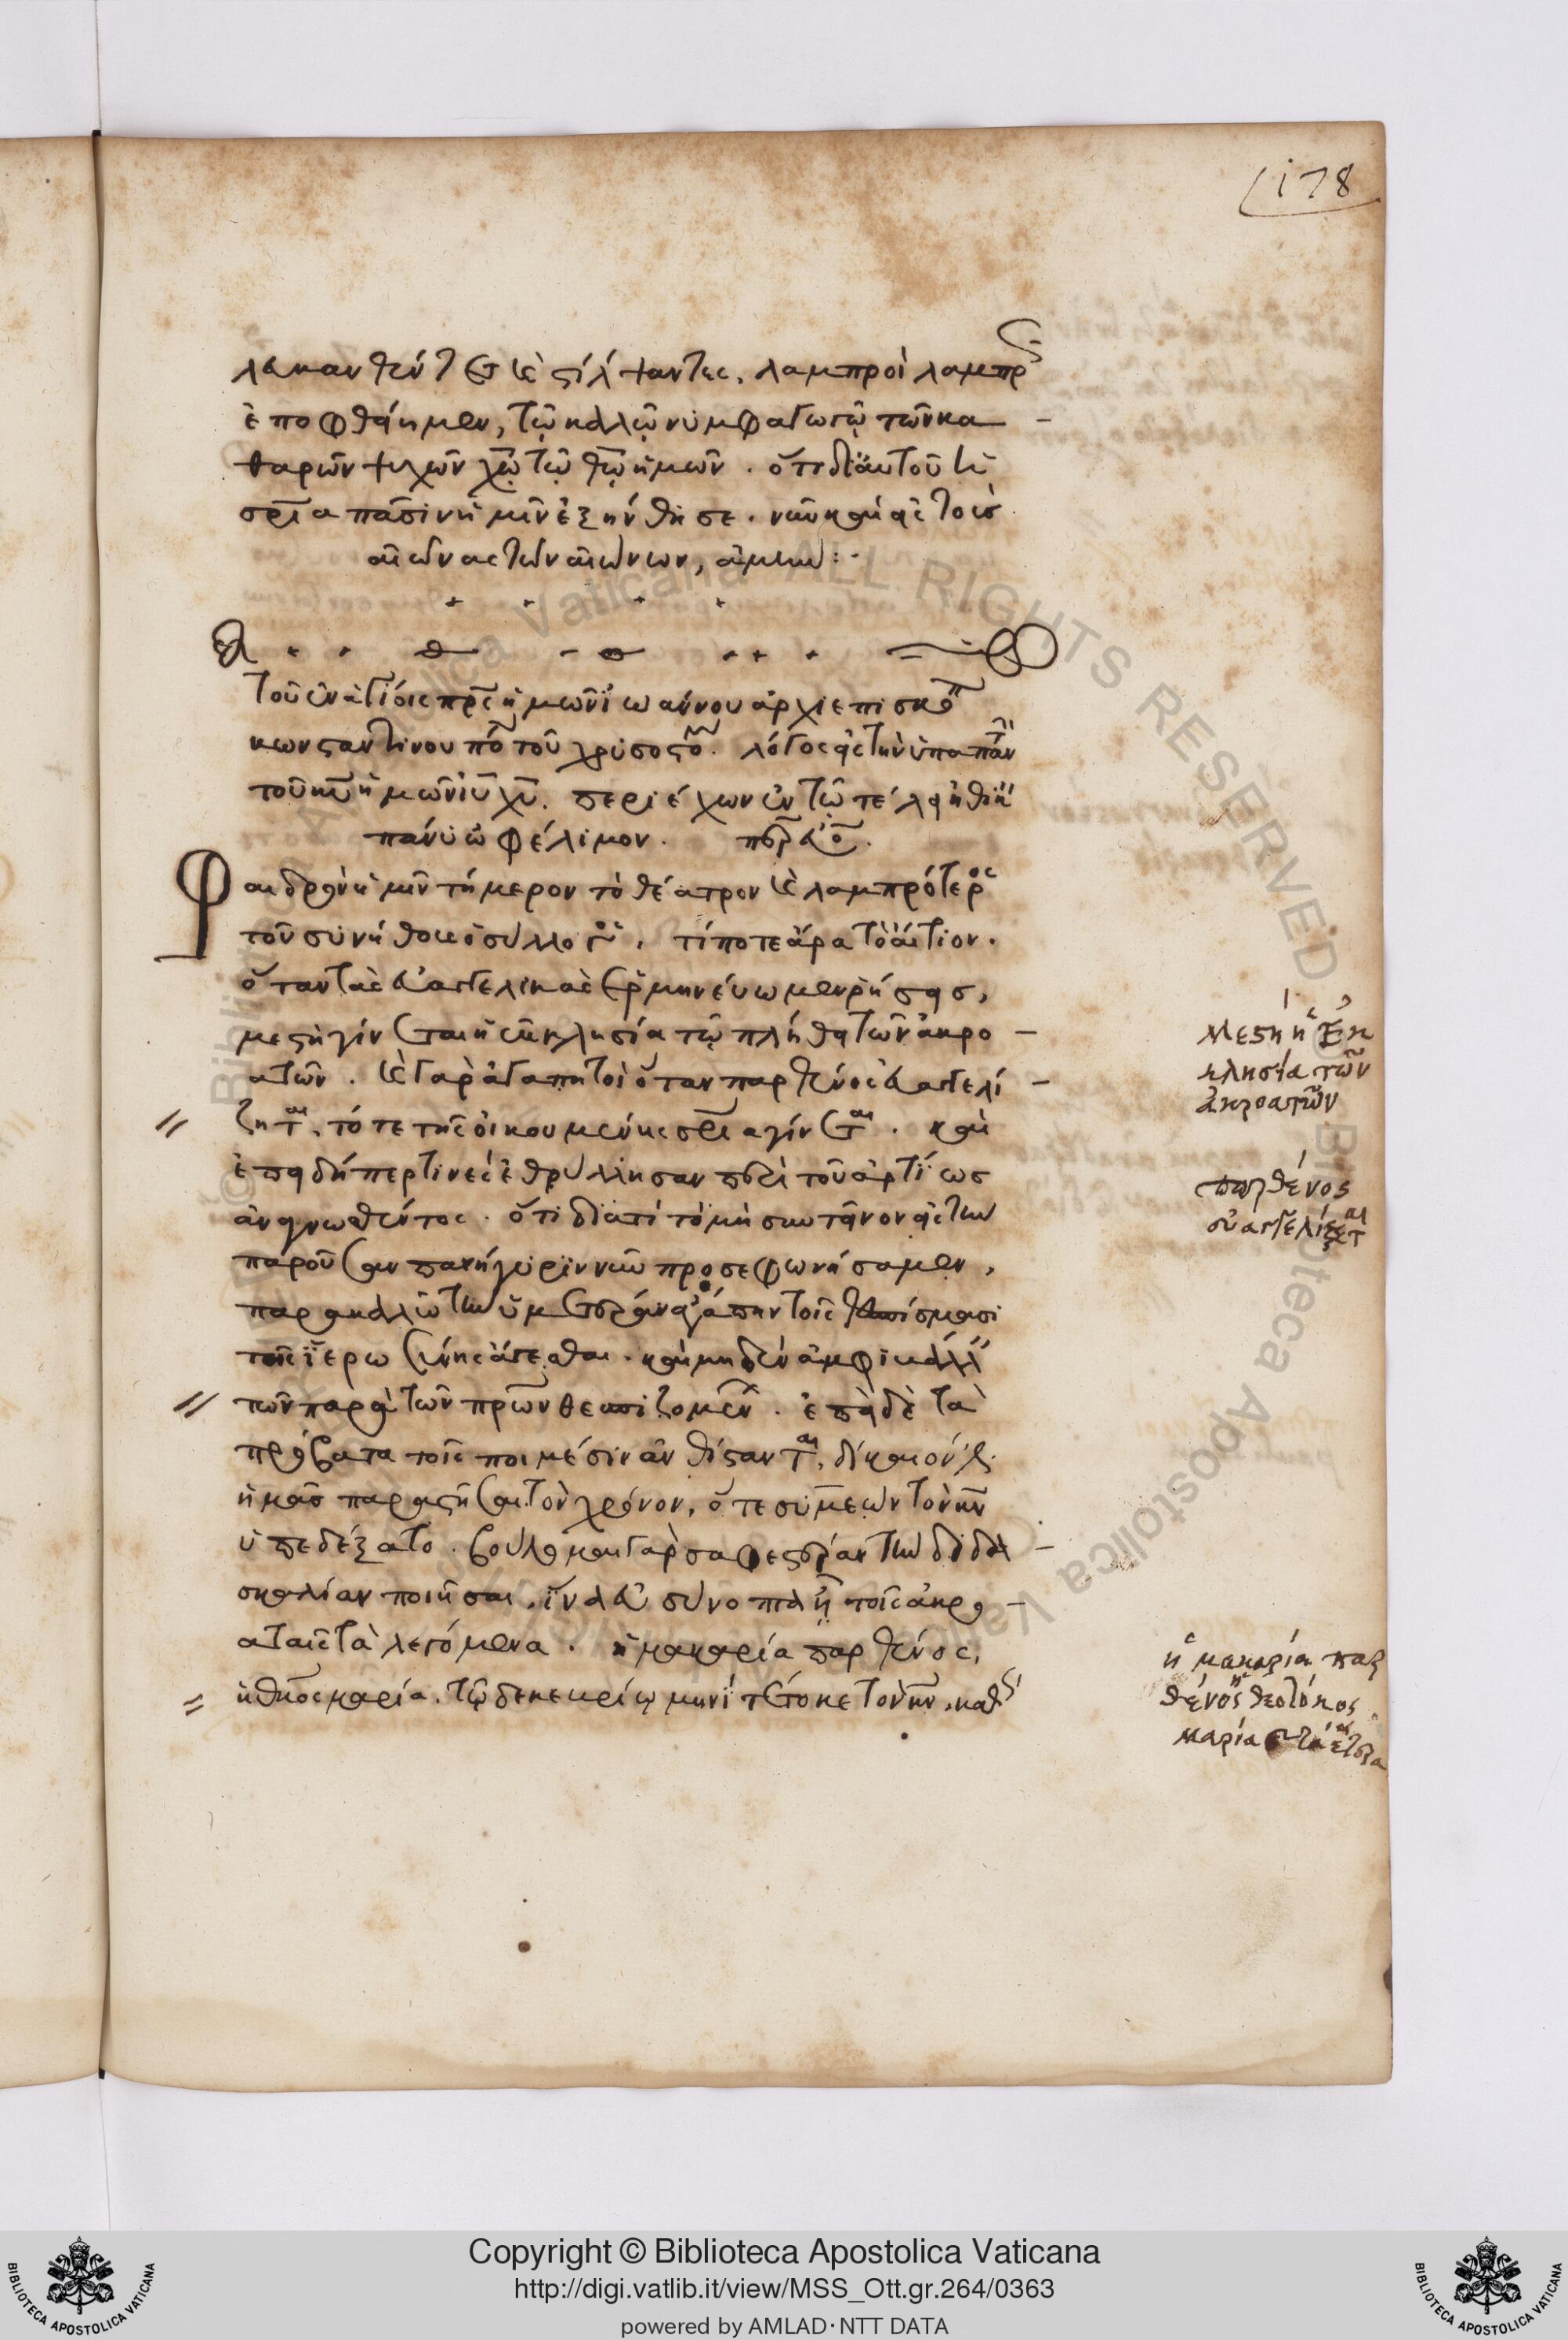 178
λευκανθέντες καὶ στίλψαντες, λαμπροὶ λαμπρῶς
ἐποφθείημεν, τῷ καλῷ νυμφαγωγῷ τῶν κα
θαρῶν ψυχῶν χῶ τῷ θῶ ἡμῶν. ὅτι δι' αὐτοῦ ἡ
σρία πᾶσιν ἡμῖν ἐξήνθησε. νῦν καὶ εἰς τοὺς
αἰῶνας τῶν αἰώνων, ἀμήν:-
Τοῦ ἐν ἁγίοις πρς ἡμῶν ἰωάννου ἀρχιεπισκόπ
κωνσταντινουπό τοῦ χρυσοστό. λόγος εἰς τὴν ὑπαπαντ
τοῦ κυ ἡμῶν ιυ χυ. περιέχων ἐν τῷ τέλει
πάνυ ὠφέλιμον.
Φαιδρὸν ἡμῖν σήμερον τὸ θέατρον καὶ λαμπρότερος
τοῦ συνήθους ὁ σύλλογος. τί ποτε ἄρα τὸ αἴτιον.
ὅταν τὰς εὐαγγελικὰς ἑρμηνεύωμεν ῥήσεις,
μεστὴ γίνεται ἡ ἐκκλησία τῷ πλήθει τῶν ἀκρο
ατῶν. καὶ γὰρ ἀγαπητοὶ ὅταν παρθένος εὐαγγελί
ζηται, τότε τῆς οἰκουμένης σρία γίνεται. καὶ
ἐπειδήπερ τινὲς ἐθρύλλησαν περὶ τοῦ ἀρτίως
ἀναγνωσθέντος. ὅτι διατί τὸ μὴ συντεῖνον εἰς τὴν
παροῦσαν πανήγυριν νῦν προσεφωνήσαμεν,
παρακαλῶ τὴν ὑμετέραν ἀγάπην τοῖς θεσπίσμασι
τοῖς ἱερωσύνης ἕπεσθαι. καὶ μηδὲν ἀμφιβάλλ
τῶν παρὰ τῶν πρων θεσπιζομένων. ἐπειδὲ τὰ
πρόβατα τοῖς ποιμέσιν ἀνθίσταντ, δίκαιόν ἐστιν
ἡμᾶς παραστῆσαι τὸν χρόνον, ὅτε συμεὼν τὸν κν
ὑπεδέξατο. βούλομαι γὰρ σαφεστέραν τὴν διδα
σκαλίαν ποιῆσαι, ἵνα εὐσύνοπτα ᾖ τοῖς ἀκρο
αταῖς τὰ λεγόμενα. ἡ μακαρία παρθένος,
ἡ θκος μαρία, τῷ δεκεμβρίῳ μηνὶ τέτοκε τὸν κν, καθ
Μεστὴ ἡ Ἐκ
κλησία τῶν
ἀκροατῶν
παρθένος
εὐαγγελίζεται
ἡ μακαρία παρ
θένος ἡ θεοτόκος
μαρία
Copyright © Biblioteca Apostolica Vaticana
http://digi.vatlib.it/view/MSS_Ott.gr.264/0363
powered by AMLAD·NTT DATA